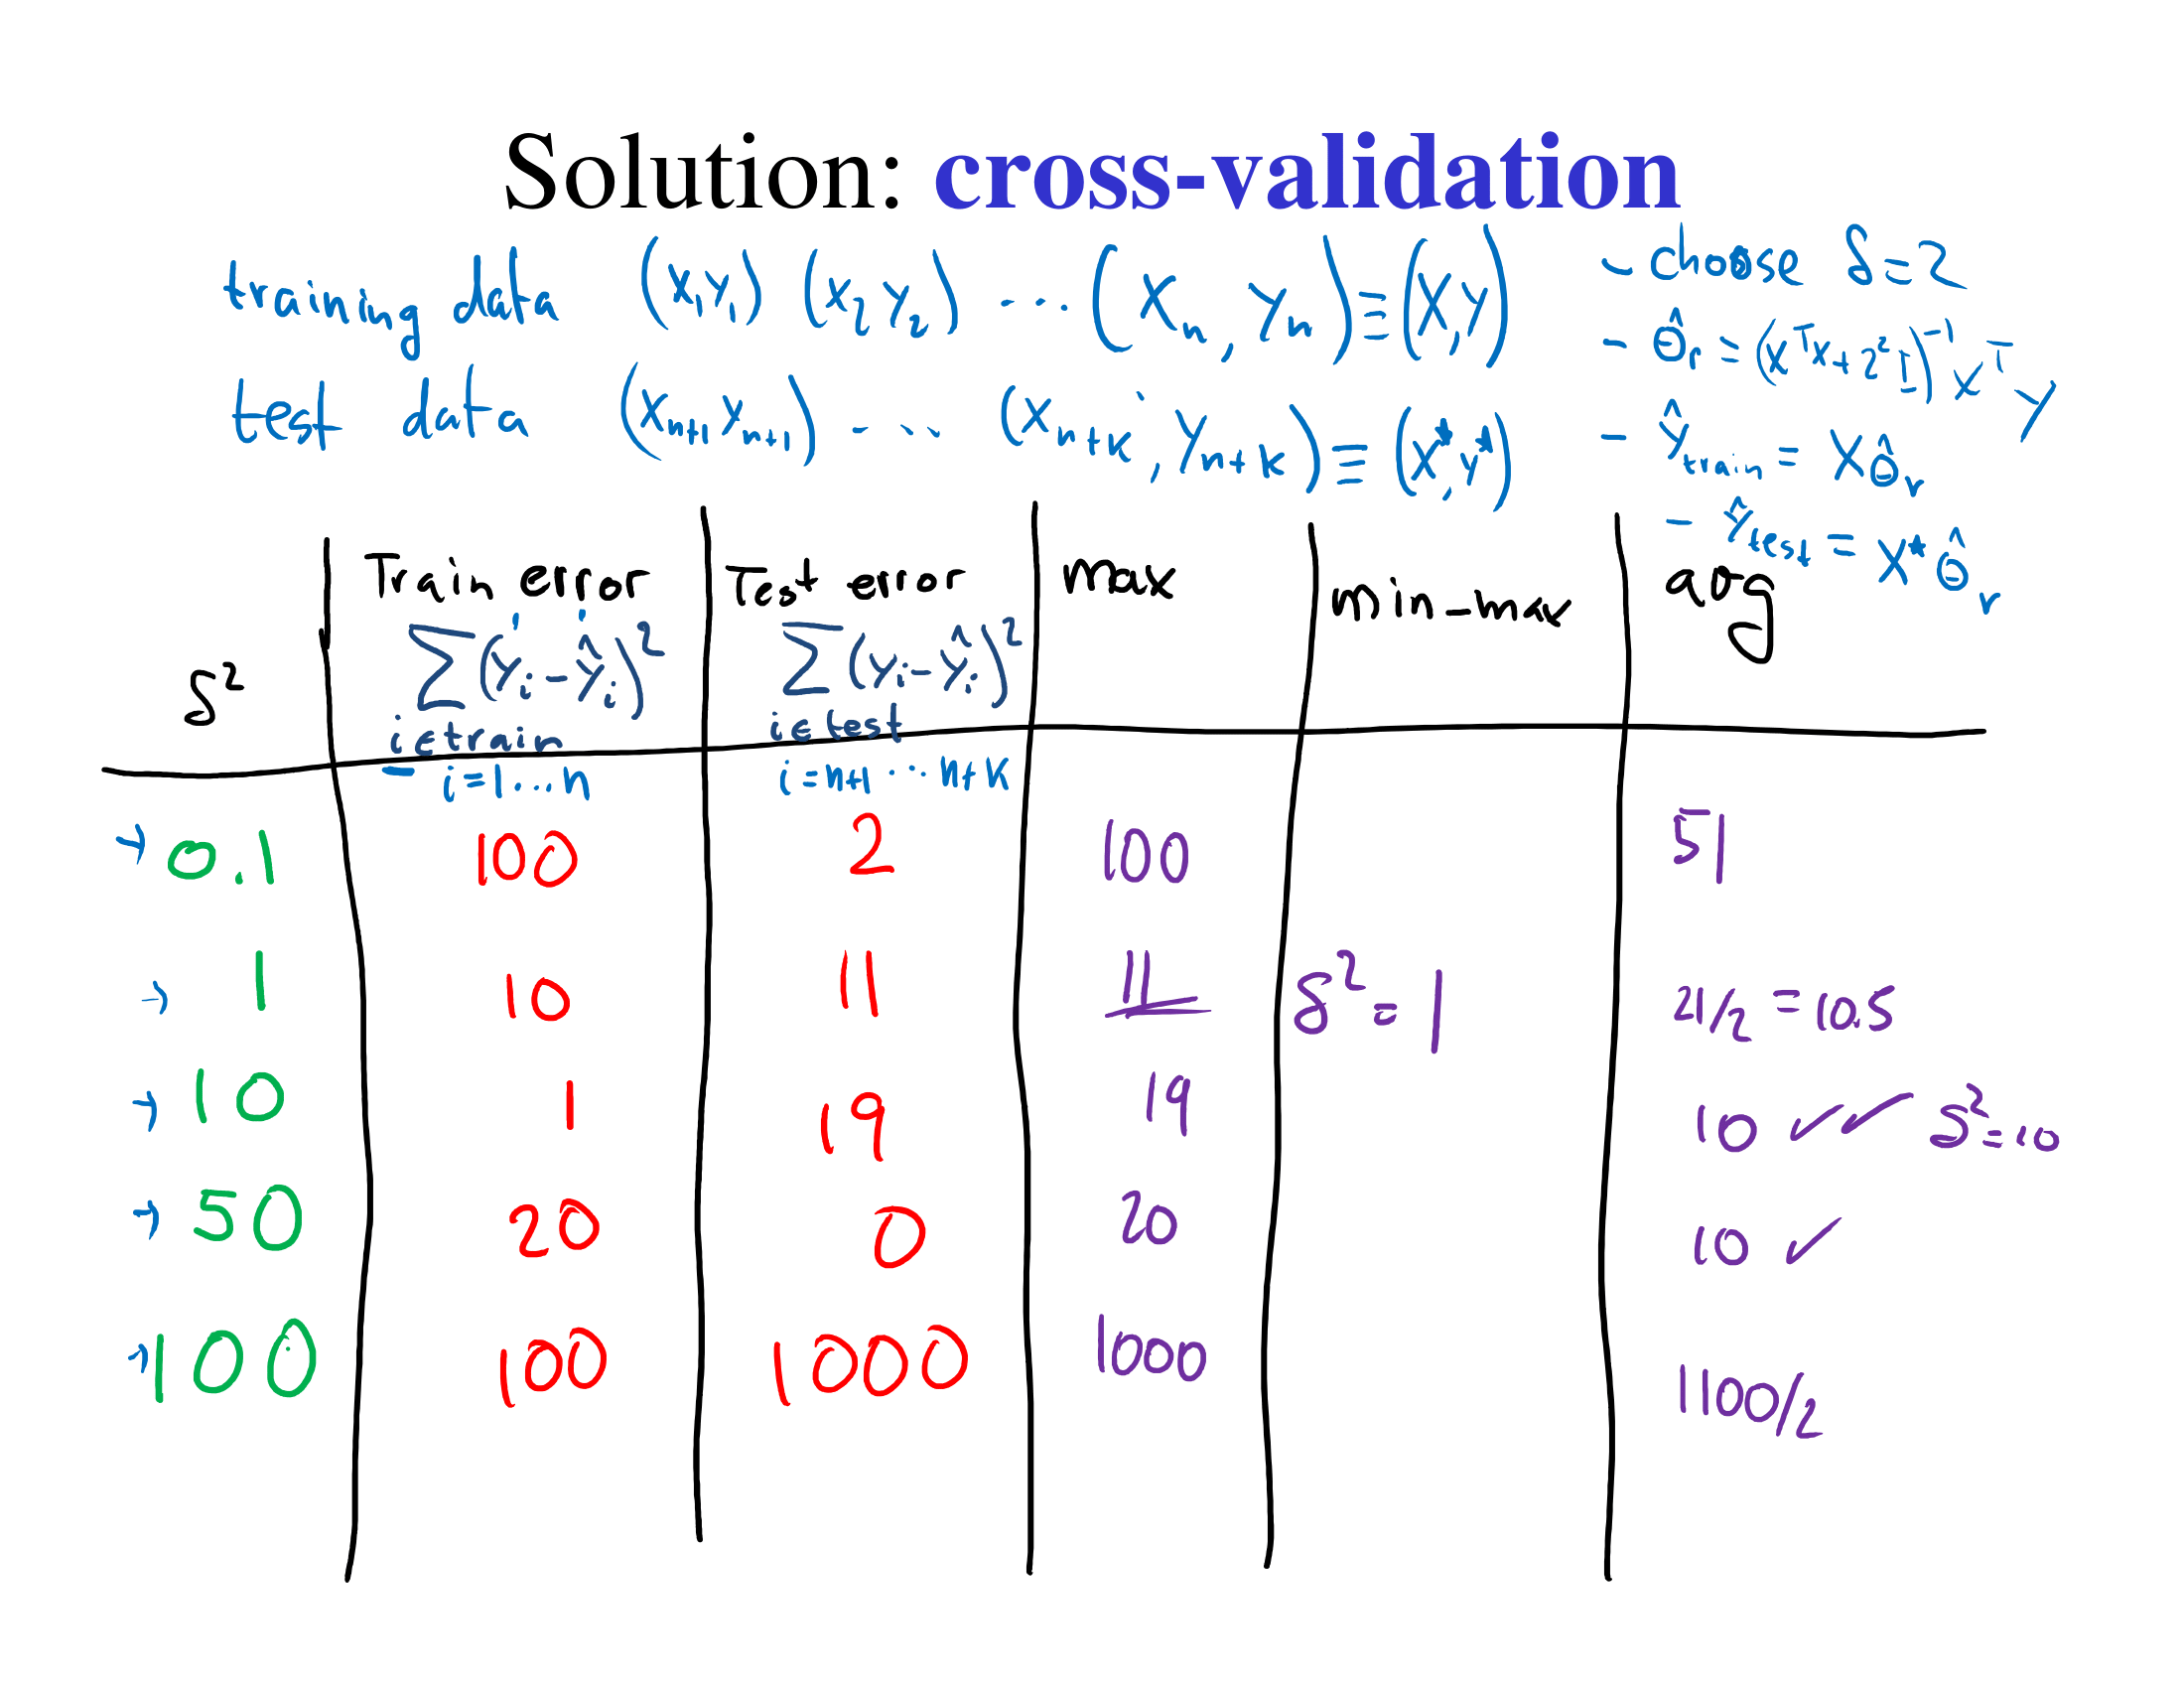 Solution: cross-validation
training data (x₁y₁) (x₂y₂) ... (xₙ, yₙ) ≡ (X,Y)
test data (xₙ₊₁yₙ₊₁) ... (xₙ₊ₖ, yₙ₊ₖ) ≡ (X*,y*)
- choose δ=2
- θ̂ᵣ = (XᵀX+2²I)⁻¹XᵀY
- Ŷtrain = Xθ̂ᵣ
- Ŷtest = X*θ̂ᵣ
δ² Train error Test error max min-max avg
∑(yᵢ-ŷᵢ)² ∑(yᵢ-ŷᵢ)²
i∈train i∈test
i=1...n i=n+1...n+k
→ 0.1 100 2 100 51
→ 1 10 11 11 δ²=1 21/2 = 10.5
→ 10 1 19 19 10 ✓✓ δ²=10
→ 50 20 0 20 10 ✓
→ 100 100 1000 1000 1100/2